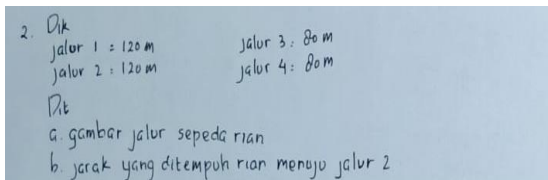 2. Dik
jalur 1 : 120 m jalur 3 : 80 m
jalur 2 : 120 m jalur 4 : 80 m
Dit
a. gambar jalur sepeda rian
b. jarak yang ditempuh rian menuju jalur 2